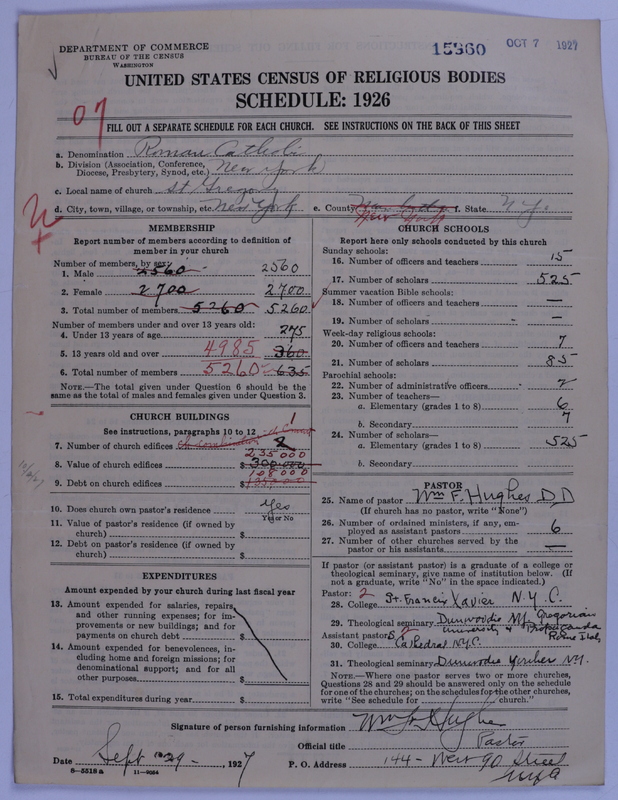 DEPARTMENT OF COMMERCE
BUREAU OF THE CENSUS
WASHINGTON
15360
OCT 7 1927
UNITED STATES CENSUS OF RELIGIOUS BODIES
SCHEDULE: 1926
07
FILL OUT A SEPARATE SCHEDULE FOR EACH CHURCH. SEE INSTRUCTIONS ON THE BACK OF THIS SHEET
a. Denomination Roman Catholic
b. Division (Association, Conference, Diocese, Presbytery, Synod, etc.) New York
c. Local name of church St Gregory
d. City, town, village, or township, etc. New York e. County New York f. State N.Y.
MEMBERSHIP
Report number of members according to definition of member in your church
Number of members, by sex:
1. Male 2560 2560
2. Female 2700 2700
3. Total number of members 5260 5260
Number of members under and over 13 years old:
4. Under 13 years of age 275
5. 13 years old and over 4985 360
6. Total number of members 5260 635
NOTE.—The total given under Question 6 should be the same as the total of males and females given under Question 3.
CHURCH BUILDINGS
See instructions, paragraphs 10 to 12
7. Number of church edifices 1
8. Value of church edifices $ 235000 300.000
9. Debt on church edifices $ 108000
10. Does church own pastor's residence Yes
Yes or No
11. Value of pastor's residence (if owned by church) $
12. Debt on pastor's residence (if owned by church) $
EXPENDITURES
Amount expended by your church during last fiscal year
13. Amount expended for salaries, repairs, and other running expenses; for improvements or new buildings; and for payments on church debt $
14. Amount expended for benevolences, including home and foreign missions; for denominational support; and for all other purposes $
15. Total expenditures during year $
CHURCH SCHOOLS
Report here only schools conducted by this church
Sunday schools:
16. Number of officers and teachers 15
17. Number of scholars 525
Summer vacation Bible schools:
18. Number of officers and teachers —
19. Number of scholars —
Week-day religious schools:
20. Number of officers and teachers 7
21. Number of scholars 85
Parochial schools:
22. Number of administrative officers 2
23. Number of teachers—
a. Elementary (grades 1 to 8) 6
b. Secondary 7
24. Number of scholars—
a. Elementary (grades 1 to 8) 525
b. Secondary
PASTOR
25. Name of pastor Wm F. Hughes D.D
(If church has no pastor, write "None")
26. Number of ordained ministers, if any, employed as assistant pastors 6
27. Number of other churches served by the pastor or his assistants —
If pastor (or assistant pastor) is a graduate of a college or theological seminary, give name of institution below. (If not a graduate, write "No" in the space indicated.)
Pastor: 2
28. College St. Francis Xavier N.Y.C.
29. Theological seminary Dunwoodie N.Y. Gregorian
University & Propaganda Rome Italy
Assistant pastors
30. College Cathedral N.Y.C.
31. Theological seminary Dunwoodie Yonkers N.Y.
NOTE.—Where one pastor serves two or more churches, Questions 28 and 29 should be answered only on the schedule for one of the churches; on the schedules for the other churches, write "See schedule for church."
Signature of person furnishing information Wm F. Hughes
Official title Pastor
Date Sept 29 -, 1927 P. O. Address 144 - West 90 Street
N.Y.C
8-5518a 11-9054